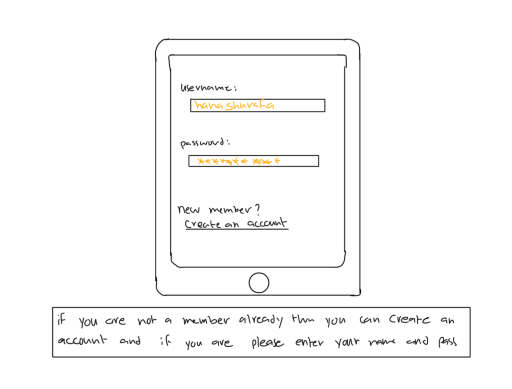 username:
hanashurata
password:
******* **** *
new member?
Create an account
if you are not a member already then you can create an
account and if you are please enter your name and pass